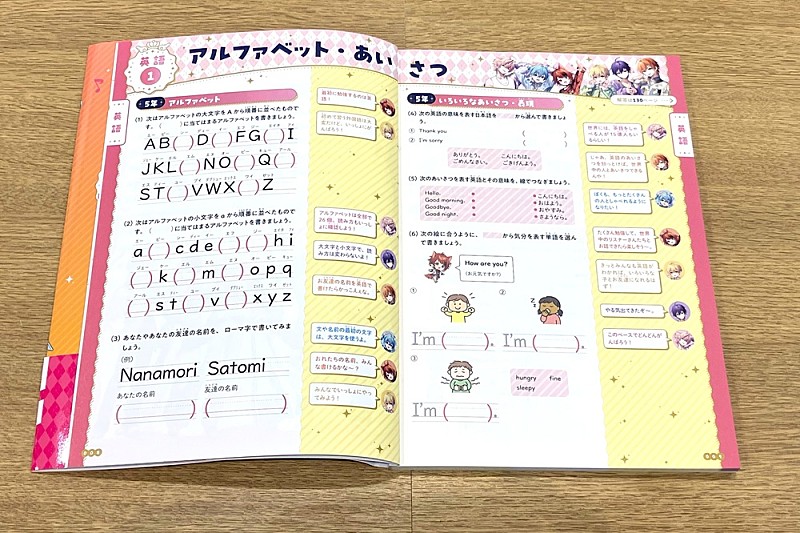 英語
1
アルファベット・あいさつ
英語
5年 アルファベット
(1) 次はアルファベットの大文字をAから順番に並べたもので
す。( )に当てはまるアルファベットを書きましょう。
AB( )D( )FG( )I
JKL( )NO( )Q( )
ST( )VWX( )Z
(2) 次はアルファベットの小文字をaから順番に並べたもので
す。( )に当てはまるアルファベットを書きましょう。
a( )cde( )( )hi
( )k( )m( )opq
( )st( )v( )xyz
(3) あなたやあなたの友達の名前を、ローマ字で書いてみま
しょう。
(例)
Nanamori Satomi
あなたの名前 友達の名前
( ) ( )
アルファベットは全部で
26個、読み方もいっし
ょに確認しよう!
大文字と小文字で、読
み方は変わらないよ!
お友達の名前を英語で
書けたらかっこええな。
文や名前の最初の文字
は、大文字を使うよ。
おれたちの名前、みん
な書けるかな〜?
みんなでいっしょにやっ
てみよう!
英語
5年 いろいろなあいさつ・表現
次の英語の意味を表す日本語を から選んで書きましょう。
① Thank you ( )
② I'm sorry ( )
ありがとう。 こんにちは。
ごめんなさい。 ごきげんよう。
(5) 次のあいさつを表す英語とその意味を、線でつなぎましょう。
Hello. • •こんにちは。
Good morning. • •おはよう。
Goodbye. • •おやすみ。
Good night. • •さようなら。
(6) 次の絵に合うように、 から気分を表す単語を選ん
で書きましょう。
How are you?
(お元気ですか?)
① ②
I'm ( ). I'm ( ).
③
I'm ( ).
hungry fine
sleepy
世界には、英語をしゃ
べる人が15億人もい
るらしい!
じゃあ、英語のあいさ
つを知っとけば、世界
中の人とあいさつできる
んや!
ぼくも、もっとたくさん
の人としゃべれるように
なりたい!
たくさん勉強して、世界
中のリスナーさんたちと
お話できたら楽しそう〜。
きっとみんなも英語が
わかれば、いろいろな
子とお友達になれるは
ず!
やる気出てきたぞ〜。
このペースでどんどんが
んばろう!